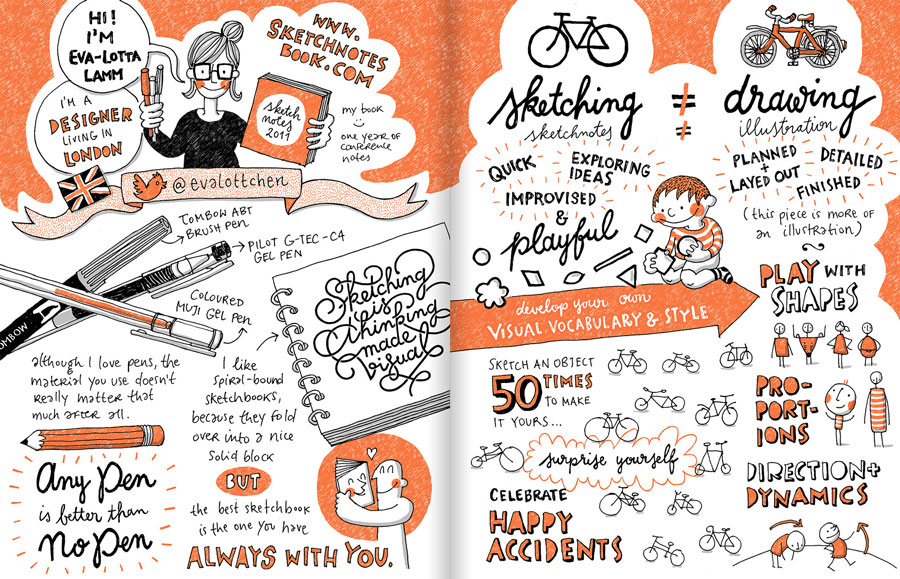 HI!
I'M
EVA-LOTTA
LAMM
I'M A
DESIGNER
LIVING IN
LONDON
WWW.
SKETCHNOTES
BOOK.COM
sketch
notes
2011
my book
one year of
conference
notes
@evalottchen
TOMBOW ABT
BRUSH PEN
PILOT G-TEC-C4
GEL PEN
COLOURED
MUJI GEL PEN
TOMBOW
Sketching
is
thinking
made
visual
although I love pens, the
material you use doesn't
really matter that
much after all.
Any Pen
is better than
No Pen
I like
spiral-bound
sketchbooks,
because they fold
over into a nice
solid block
BUT
the best sketchbook
is the one you have
ALWAYS WITH YOU.
sketching ≠ drawing
sketchnotes ≠ illustration
QUICK
EXPLORING
IDEAS
IMPROVISED
&
playful
PLANNED
+
LAYED OUT
DETAILED
FINISHED
(this piece is more of
an illustration)
develop your own
VISUAL VOCABULARY & STYLE
SKETCH AN OBJECT
50 TIMES
TO MAKE
IT YOURS...
surprise yourself
CELEBRATE
HAPPY
ACCIDENTS
PLAY WITH
SHAPES
PRO-
PORT-
IONS
DIRECTION+
DYNAMICS